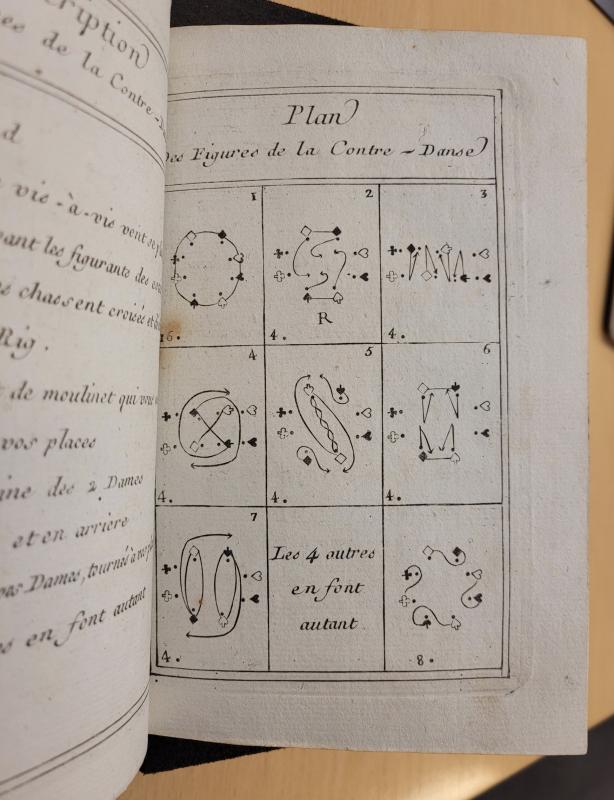 cription
res de la Contre-
d
vis-à-vis vent se
ant les figurants des
s chassent croisés et
Rig.
de moulinet qui vous
vos places
ine des 2 Dames
et en arriere
vos Dames, tournés à vos
s en font autant
Plan
Des Figures de la Contre-Danse
1
2
3
16.
4.
R
4.
4
5
6
4.
4.
4.
7
Les 4 autres
en font
autant
4.
8.